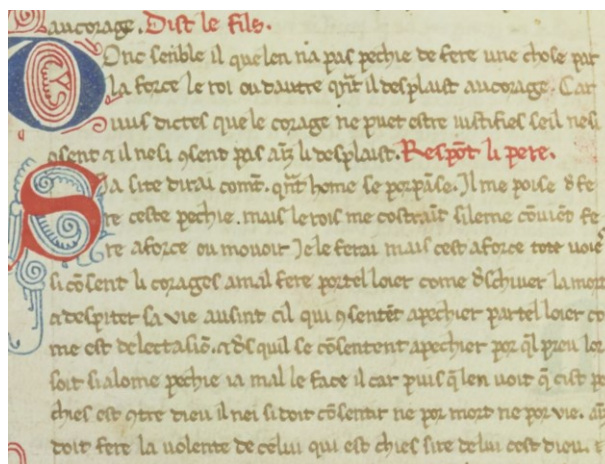 aucorage. Dist le fils.
Donc senble il quelen na pas pechie de fere une chose par
la force le roi ou dautre qn̄t il desplaist aucorage. Car
vous dictes que le corage ne puet estre iustifies seil nesi
ꝯsent ⁊ il nesi ꝯsent pas aīz li desplaist. Respōt li pere.
Sa site dirai comt̄. qn̄t home se porpāse. Jl me poise d̄ fe
re ceste pechie. mais lerois me costraīt sileme cōuiēt fe
re aforce ou morir Je le ferai mais cest aforce tote uoies
si cōsent li corages amal fere portel loier come d̄schiver la mort
⁊ despiter sa vie ausint cil qui ꝯsentēt apechier partel loier co
me est delectasiō. ⁊ d̄s quil se cōsentent apechier por q̄l preu lor
soit si alome pechie ia mal le face il car puis q̄ len uoit q̄ cist pe
chies est ꝯtre dieu il nei si doit cōsentir ne por mort ne por vie.
doit fere la volente de celui qui est chies sire de lui cest dieu.